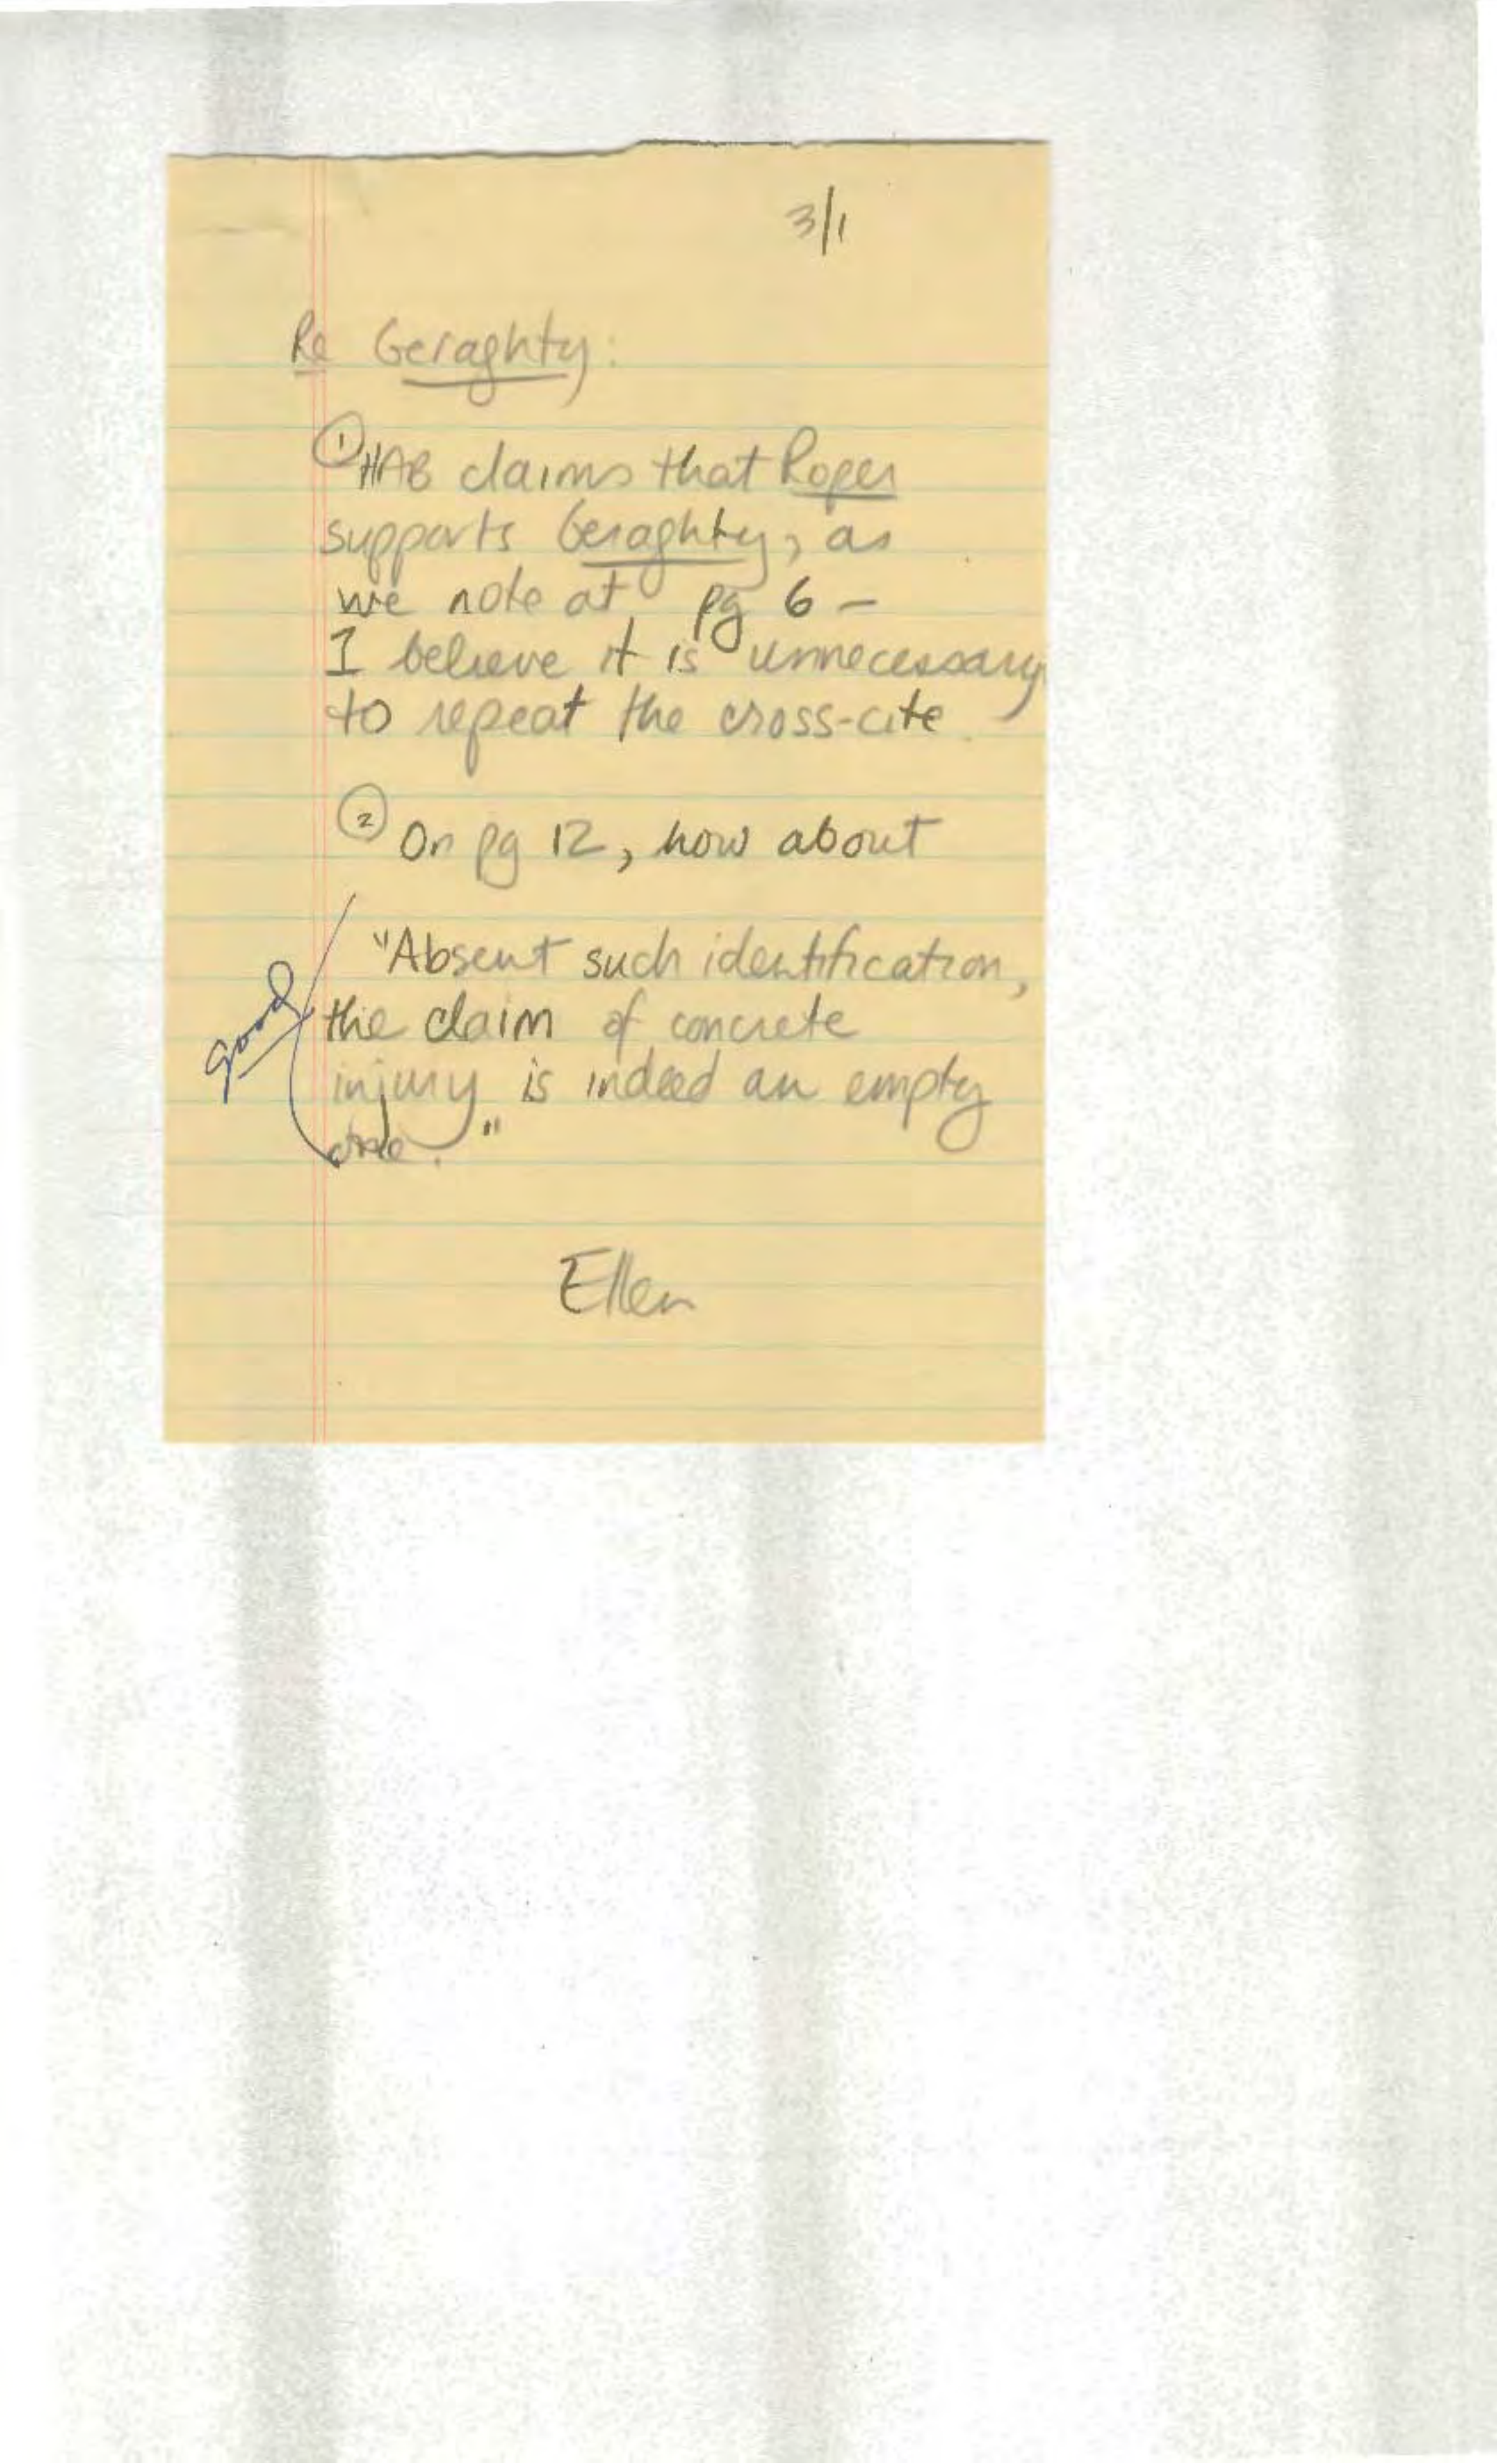 3/1
Re Geraghty:
① HAB claims that Roper
supports Geraghty, as
we note at pg 6 –
I believe it is unnecessary
to repeat the cross-cite.
② On pg 12, how about
"Absent such identification,
good
the claim of concrete
injury is indeed an empty
one."
Ellen